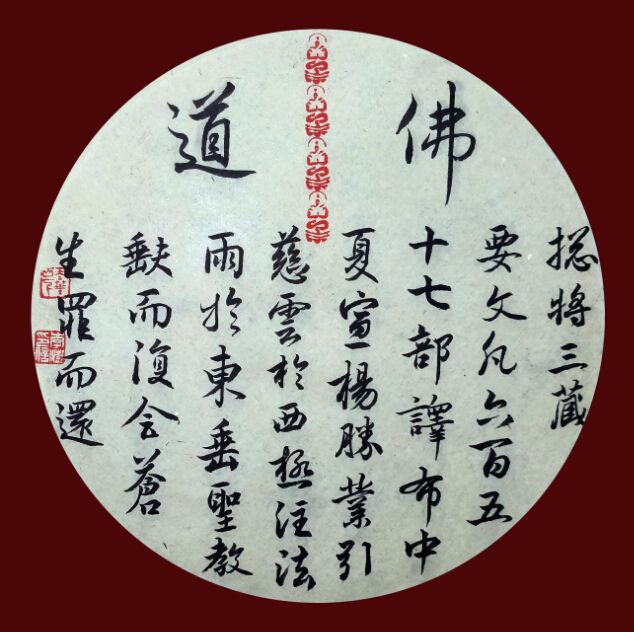 佛道
捴將三藏
要文凡六百五
十七部譯布中
夏宣楊勝業引
慈雲於西極注法
雨於東垂聖教
缺而復全蒼
生罪而還